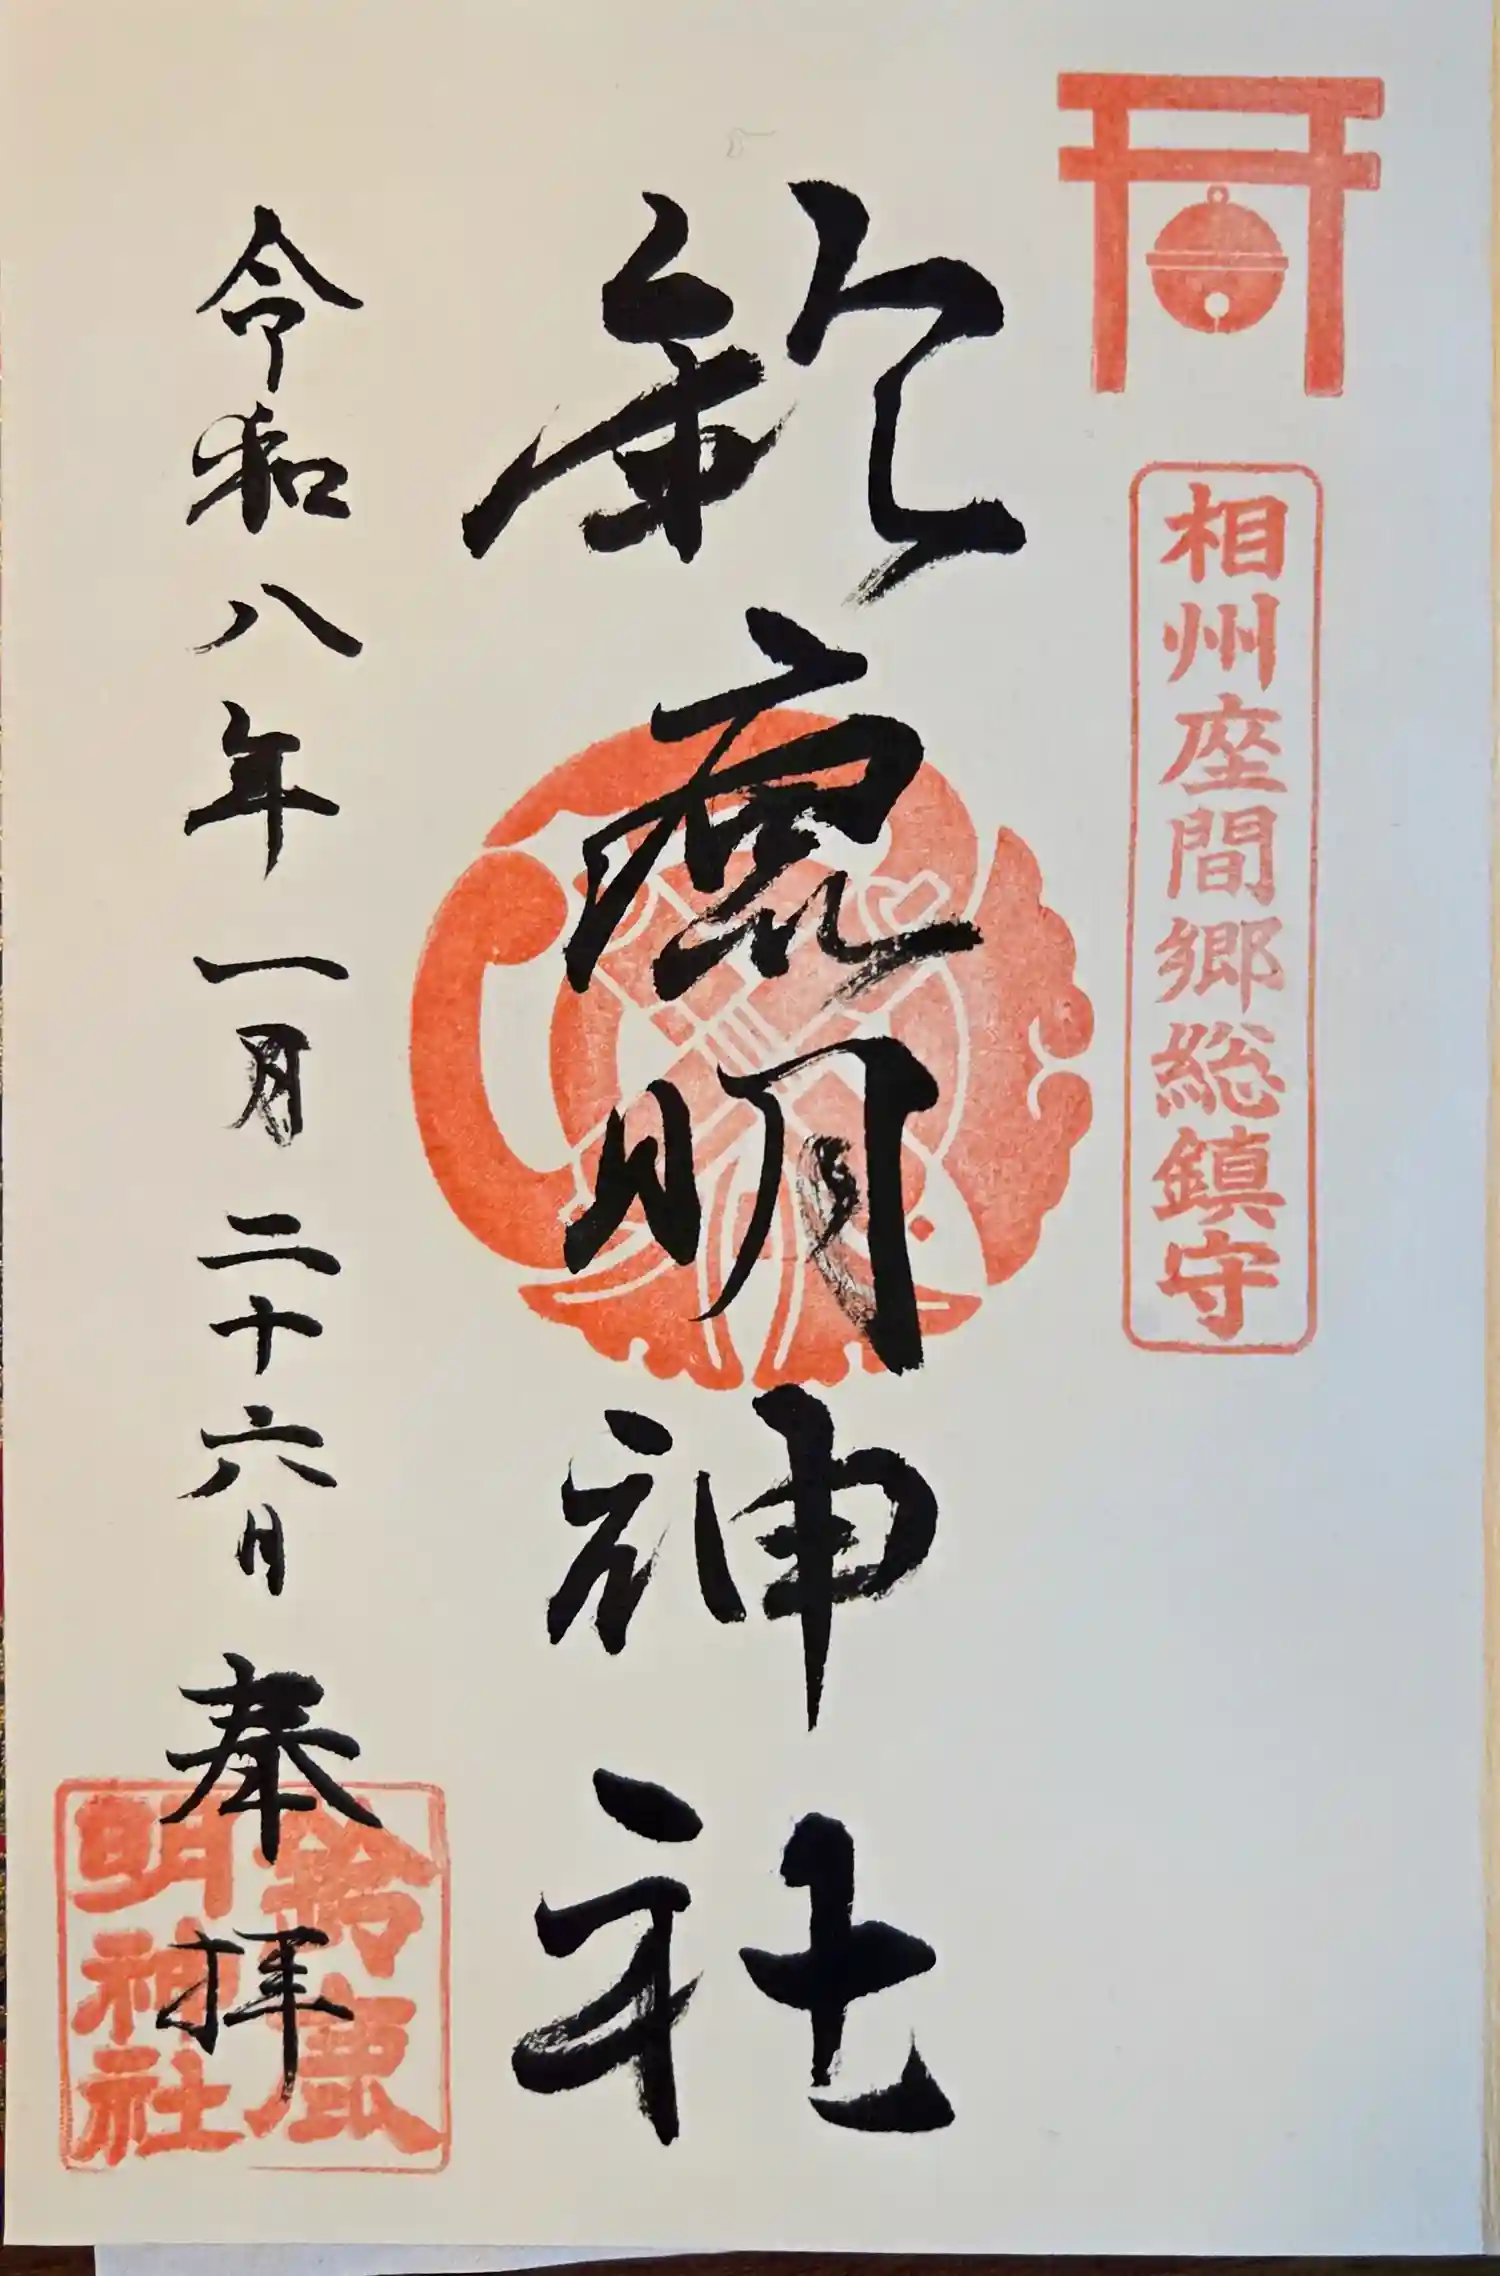 相州座間郷総鎮守
鈴鹿明神社
令和八年一月二十六日 奉拝
鈴鹿
明神社